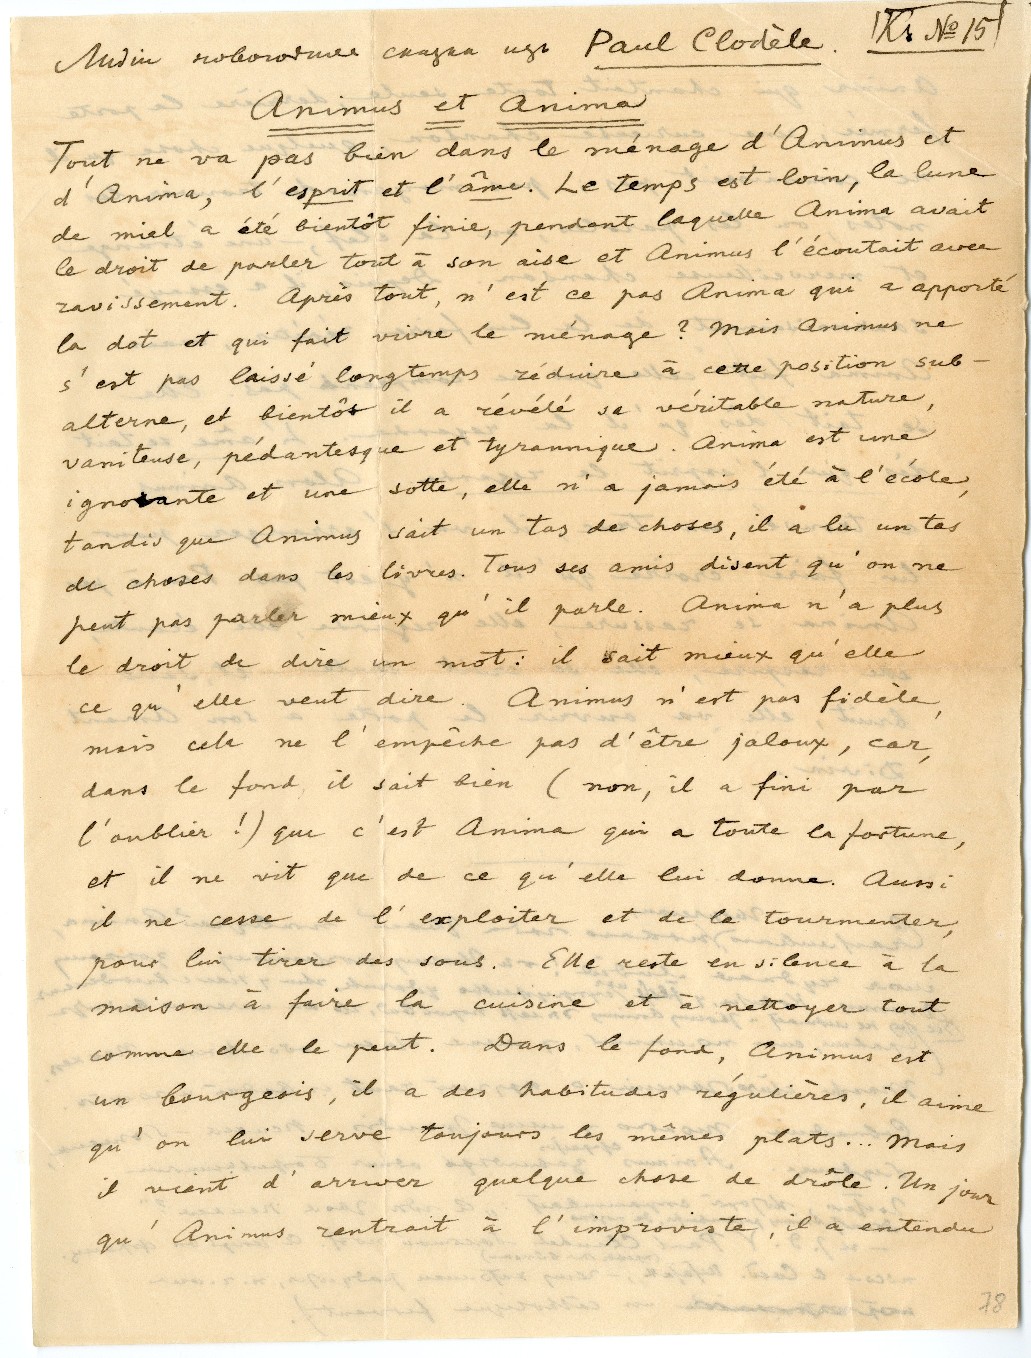 Kr № 15
сказка изъ Paul Clodèle.
Animus et Anima
Tout ne va pas bien dans le ménage d'Animus et
d'Anima, l'esprit et l'âme. Le temps est loin, la lune
de miel a été bientôt finie, pendant laquelle Anima avait
le droit de parler tout à son aise et Animus l'écoutait avec
ravissement. Après tout, n'est ce pas Anima qui a apporté
la dot et qui fait vivre le ménage? Mais Animus ne
s'est pas laissé longtemps réduire à cette position sub-
alterne, et bientôt il a révélé sa véritable nature,
vaniteuse, pédantesque et tyrannique. Anima est une
ignorante et une sotte, elle n'a jamais été à l'école,
tandis que Animus sait un tas de choses, il a lu un tas
de choses dans les livres. Tous ses amis disent qu'on ne
peut pas parler mieux qu'il parle. Anima n'a plus
le droit de dire un mot: il sait mieux qu'elle
ce qu'elle veut dire. Animus n'est pas fidèle,
mais cela ne l'empêche pas d'être jaloux, car,
dans le fond, il sait bien (non, il a fini par
l'oublier!) que c'est Anima qui a toute la fortune,
et il ne vit que de ce qu'elle lui donne. Aussi
il ne cesse de l'exploiter et de la tourmenter,
pour lui tirer des sous. Elle reste en silence à la
maison à faire la cuisine et à nettoyer tout
comme elle le peut. Dans le fond, Animus est
un bourgeois, il a des habitudes régulières, il aime
qu'on lui serve toujours les mêmes plats... Mais
il vient d'arriver quelque chose de drôle. Un jour
qu'Animus rentrait à l'improviste, il a entendu
78